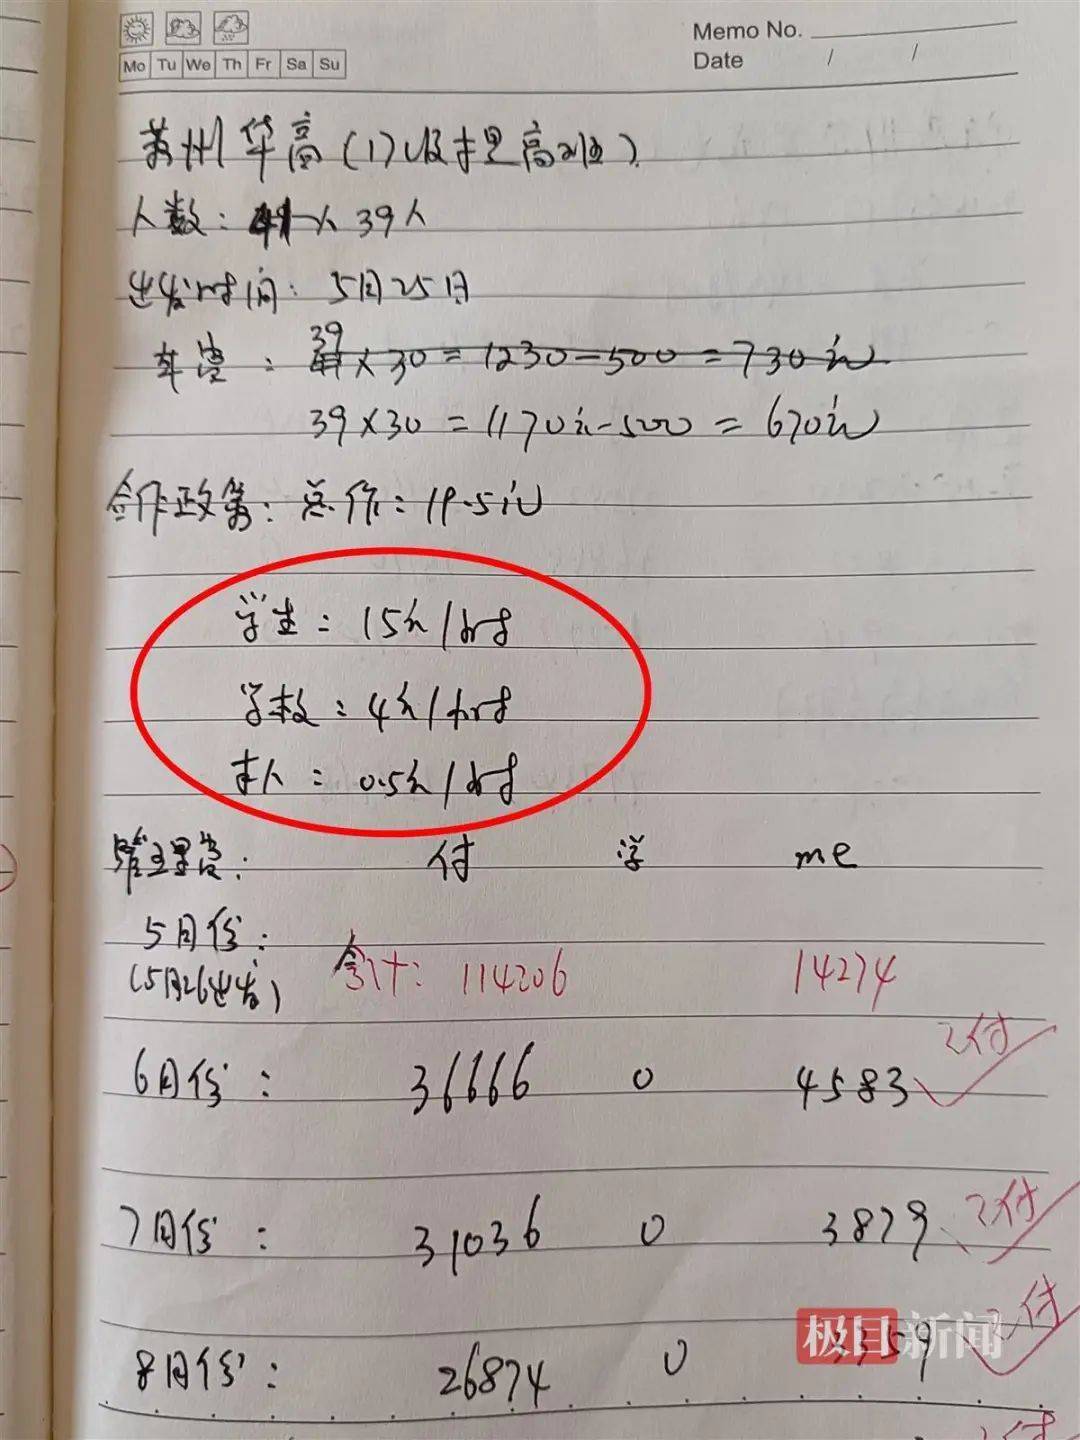 Memo No.
Mo Tu We Th Fr Sa Su
Date / /
苏州华高(17级提高班)
人数: 41人 39人
出发时间: 5月25日
车费: 39 41×30=1230-500=730元
39×30=1170元-500=670元
合作政策: 总价: 19.5元
学生: 15元/时
学校: 4元/时
本人: 0.5元/时
管理费: 付 学 me
5月份:
(5月26出发) 合计: 114206 14274
6月份: 36666 0 4583 已付
7月份: 31036 0 3879 已付
8月份: 26874 0 3359 已付
极目新闻
已付